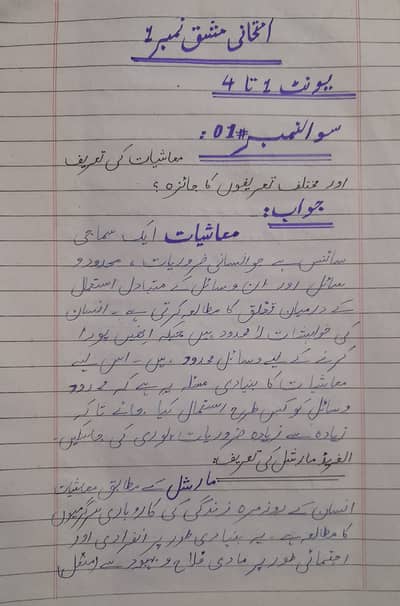 امتحانی مشق نمبر 1
یونٹ 1 تا 4
سوالنمبر #01:
معاشیات کی تعریف
اور مختلف تعریفوں کا جائزہ؟
جواب:
معاشیات ایک سماجی
سائنس ہے جو انسانی ضروریات، محدود و
سائل اور ان وسائل کے متبادل استعمال
کے درمیان تعلق کا مطالعہ کرتی ہے۔ انسان
کی خواہشات لامحدود ہیں جبکہ انہیں پورا
کرنے کے لیے وسائل محدود ہیں۔ اس لیے
معاشیات کا بنیادی مسئلہ یہ ہے کہ محدود
وسائل کو کس طرح استعمال کیا جائے تاکہ
زیادہ سے زیادہ ضروریات پوری کی جاسکیں۔
الفریڈ مارشل کی تعریف:
مارشل کے مطابق معاشیات
انسان کے روزمرہ زندگی کی کاروباری سرگرمیوں
کا مطالعہ ہے۔ یہ بنیادی طور پر انفرادی اور
اجتماعی طور پر مادی فلاح و بہبود سے